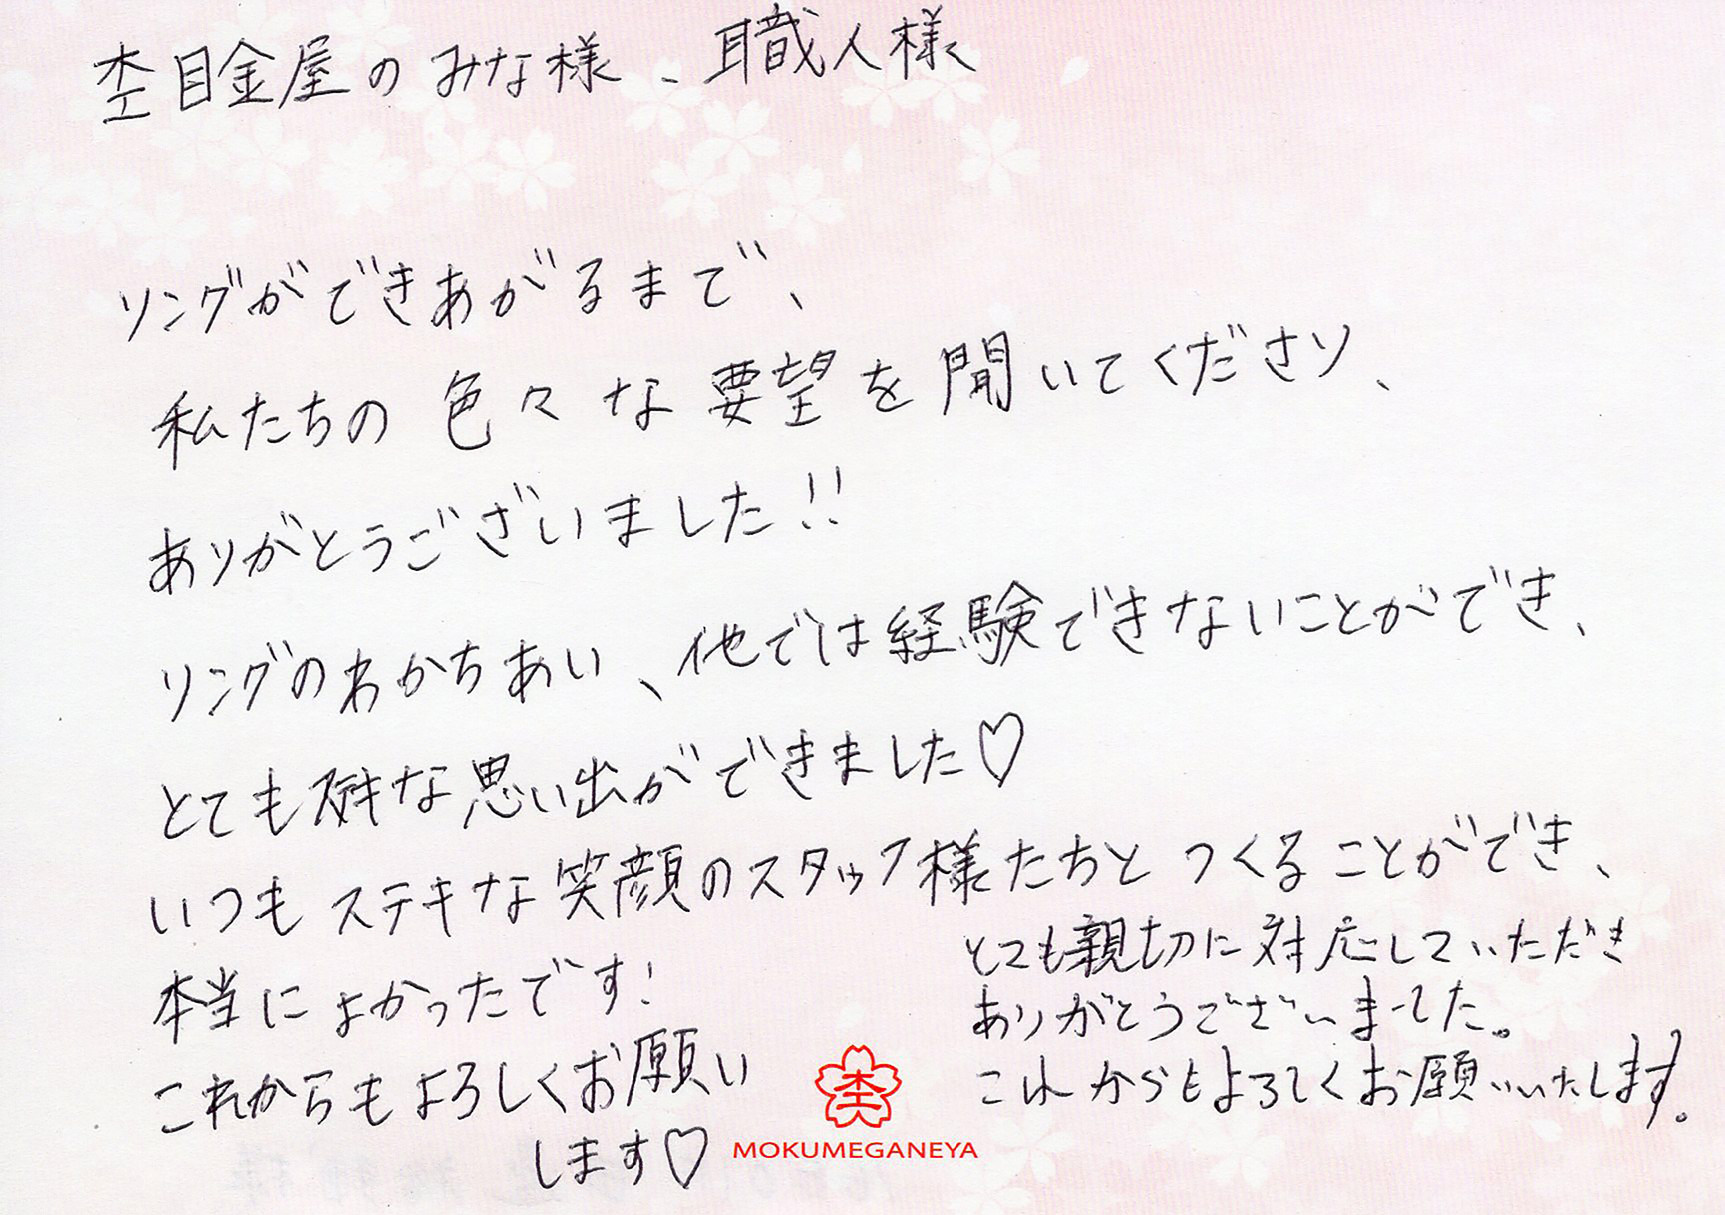 杢目金屋のみな様、職人様
リングができあがるまで、
私たちの色々な要望を聞いてくださり、
ありがとうございました!!
リングのわかちあい、他では経験できないことができ、
とても な思い出ができました♡
いつもステキな笑顔のスタッフ様たちとつくることができ、
本当によかったです!
これからもよろしくお願い
します♡
とても親切に対応していただき
ありがとうございました。
これからもよろしくお願いいたします。
杢
MOKUMEGANEYA